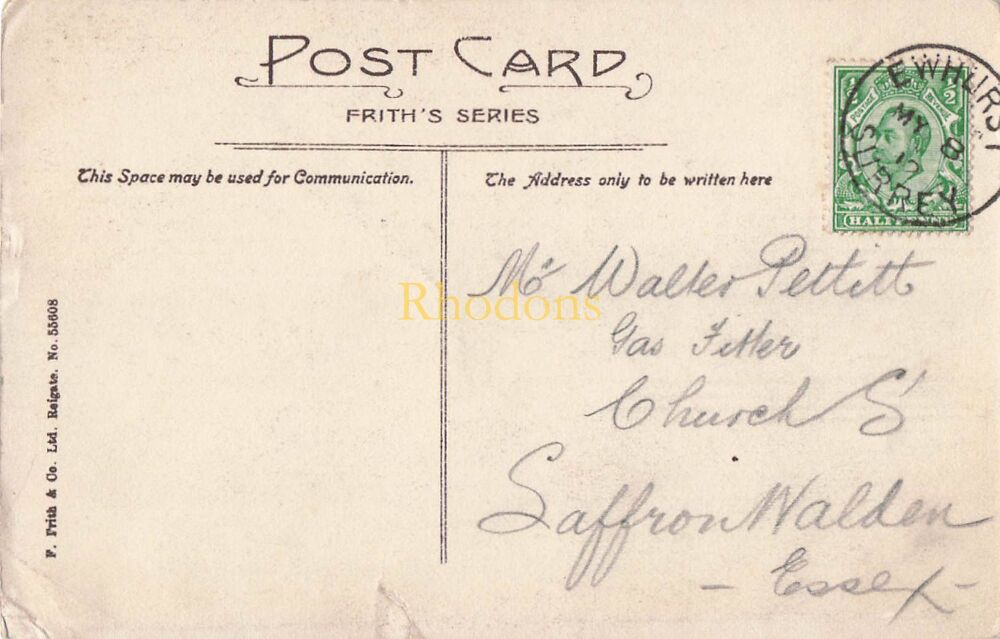 POST CARD
FRITH'S SERIES
This Space may be used for Communication.
The Address only to be written here
1/2 1/2
POSTAGE REVENUE
HALF
EWHURST
MY 8
12
SURREY
Mr Walter Pettitt
Gas Fitter
Church St
Saffron Walden
- Essex -
F. Frith & Co. Ltd. Reigate. No. 55608
Rhodons